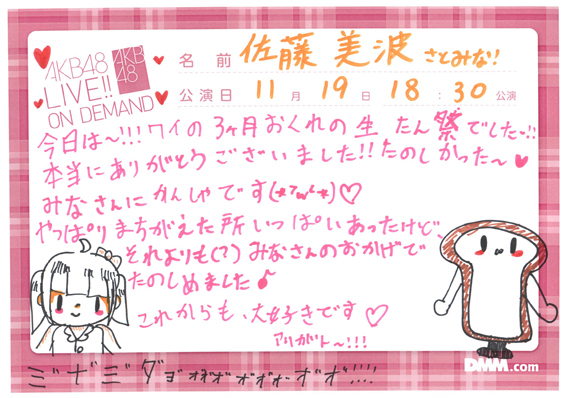 AKB48
LIVE!!
ON DEMAND
AKB
48
名前 佐藤 美波 さとみな!
公演日 11月 19日 18:30 公演
今日は〜!!! ワイの3ヶ月おくれの生たん祭でした〜!!
本当にありがとうございました!! たのしかった〜♥
みなさんにかんしゃです(*^ω^*)♡
やっぱりまちがえた所いっぱいあったけど、
それよりも(?)みなさんのおかげで
たのしめました♪
これからも、大好きです♡
アリガト〜!!!
DMM.com